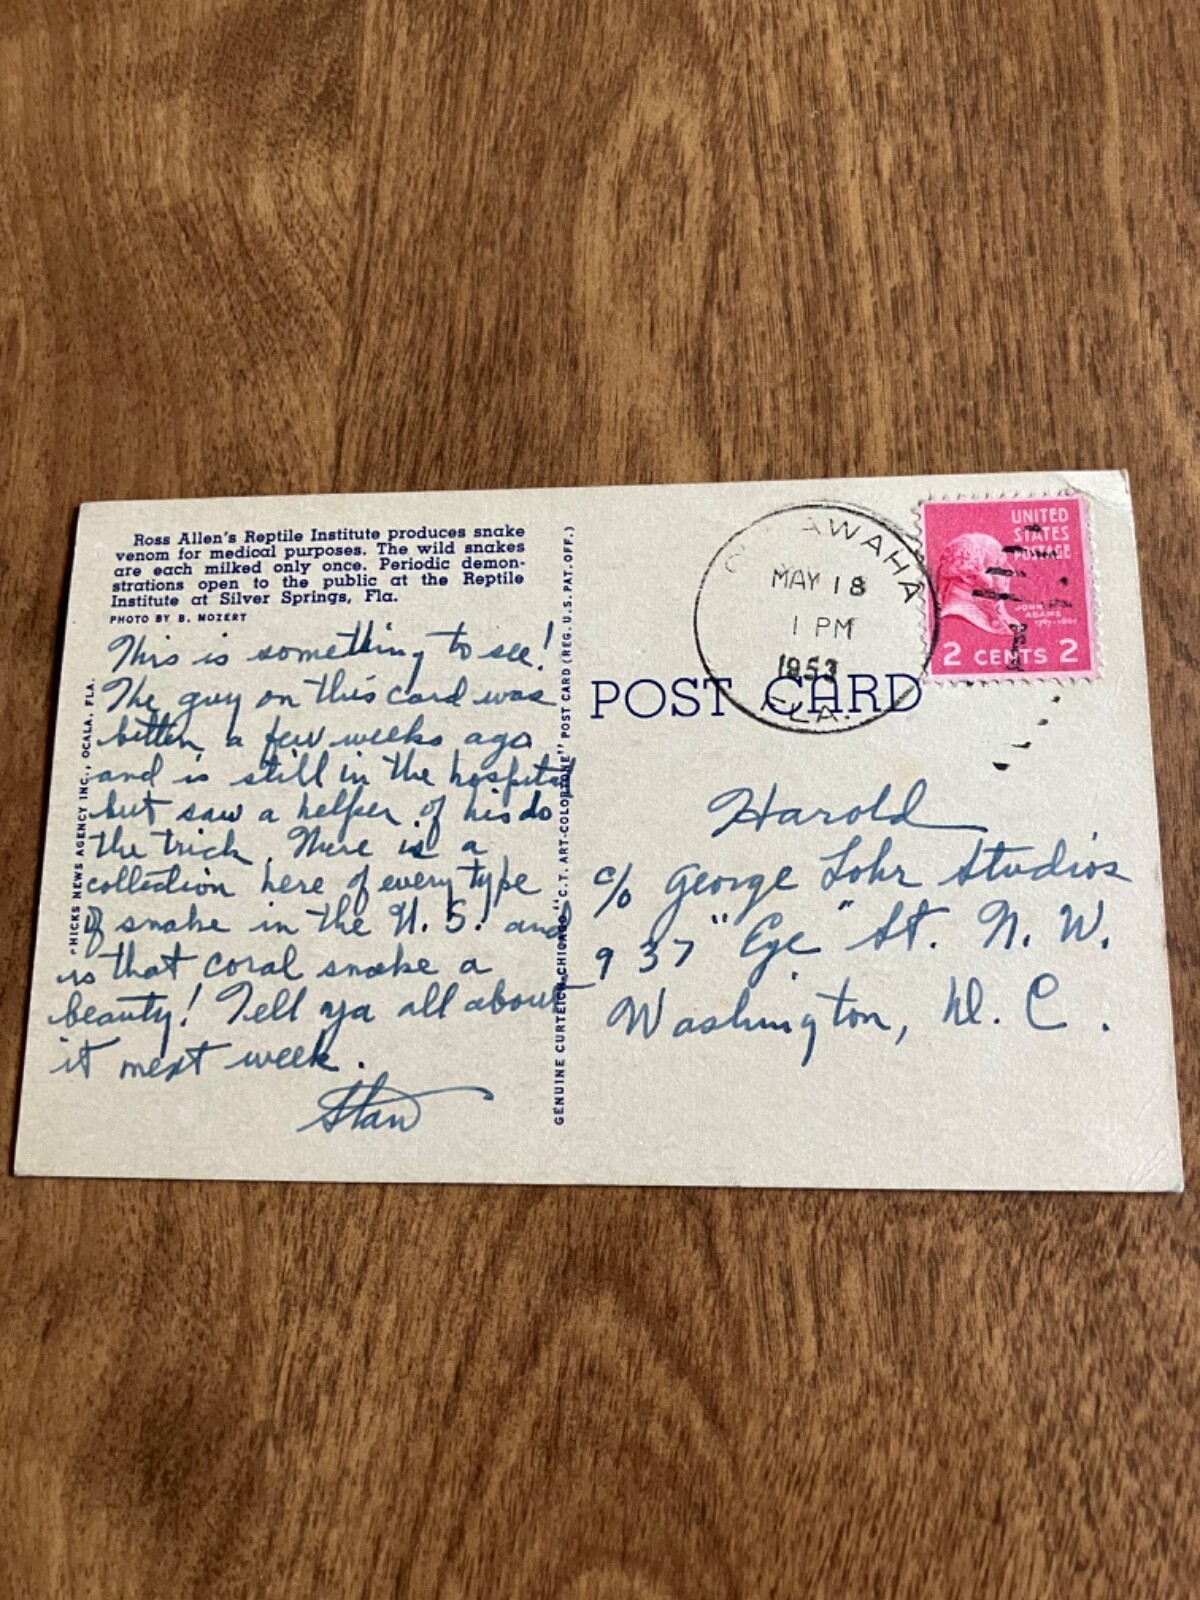 Ross Allen's Reptile Institute produces snake
venom for medical purposes. The wild snakes
are each milked only once. Periodic demon-
strations open to the public at the Reptile
Institute at Silver Springs, Fla.
PHOTO BY B. MOZERT
This is something to see!
The guy on this card was
bitten a few weeks ago
and is still in the hospital
but saw a helper of his do
the trick. There is a
collection here of every type
of snake in the U. S. and
is that coral snake a
beauty! Tell ya all about
it next week.
Stan
HICKS NEWS AGENCY INC., OCALA, FLA.
GENUINE CURTEICH-CHICAGO "C.T. ART-COLORTONE" POST CARD (REG. U.S. PAT. OFF.)
POST CARD
AWAHA
MAY 18
1 PM
1953
LA.
UNITED
STATES
POSTAGE
JOHN
ADAMS
2 CENTS 2
Harold
c/o George Lohr Studios
937 "Eye" St. N. W.
Washington, D. C.